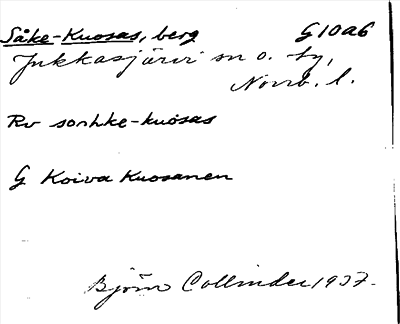 Såke-Kuosas, berg G10a6
Jukkasjärvi sn o. ty,
Norrb. l.
Rv sorhke-kuosas
G Koiva Kuosanen
Björn Collinder 1937.